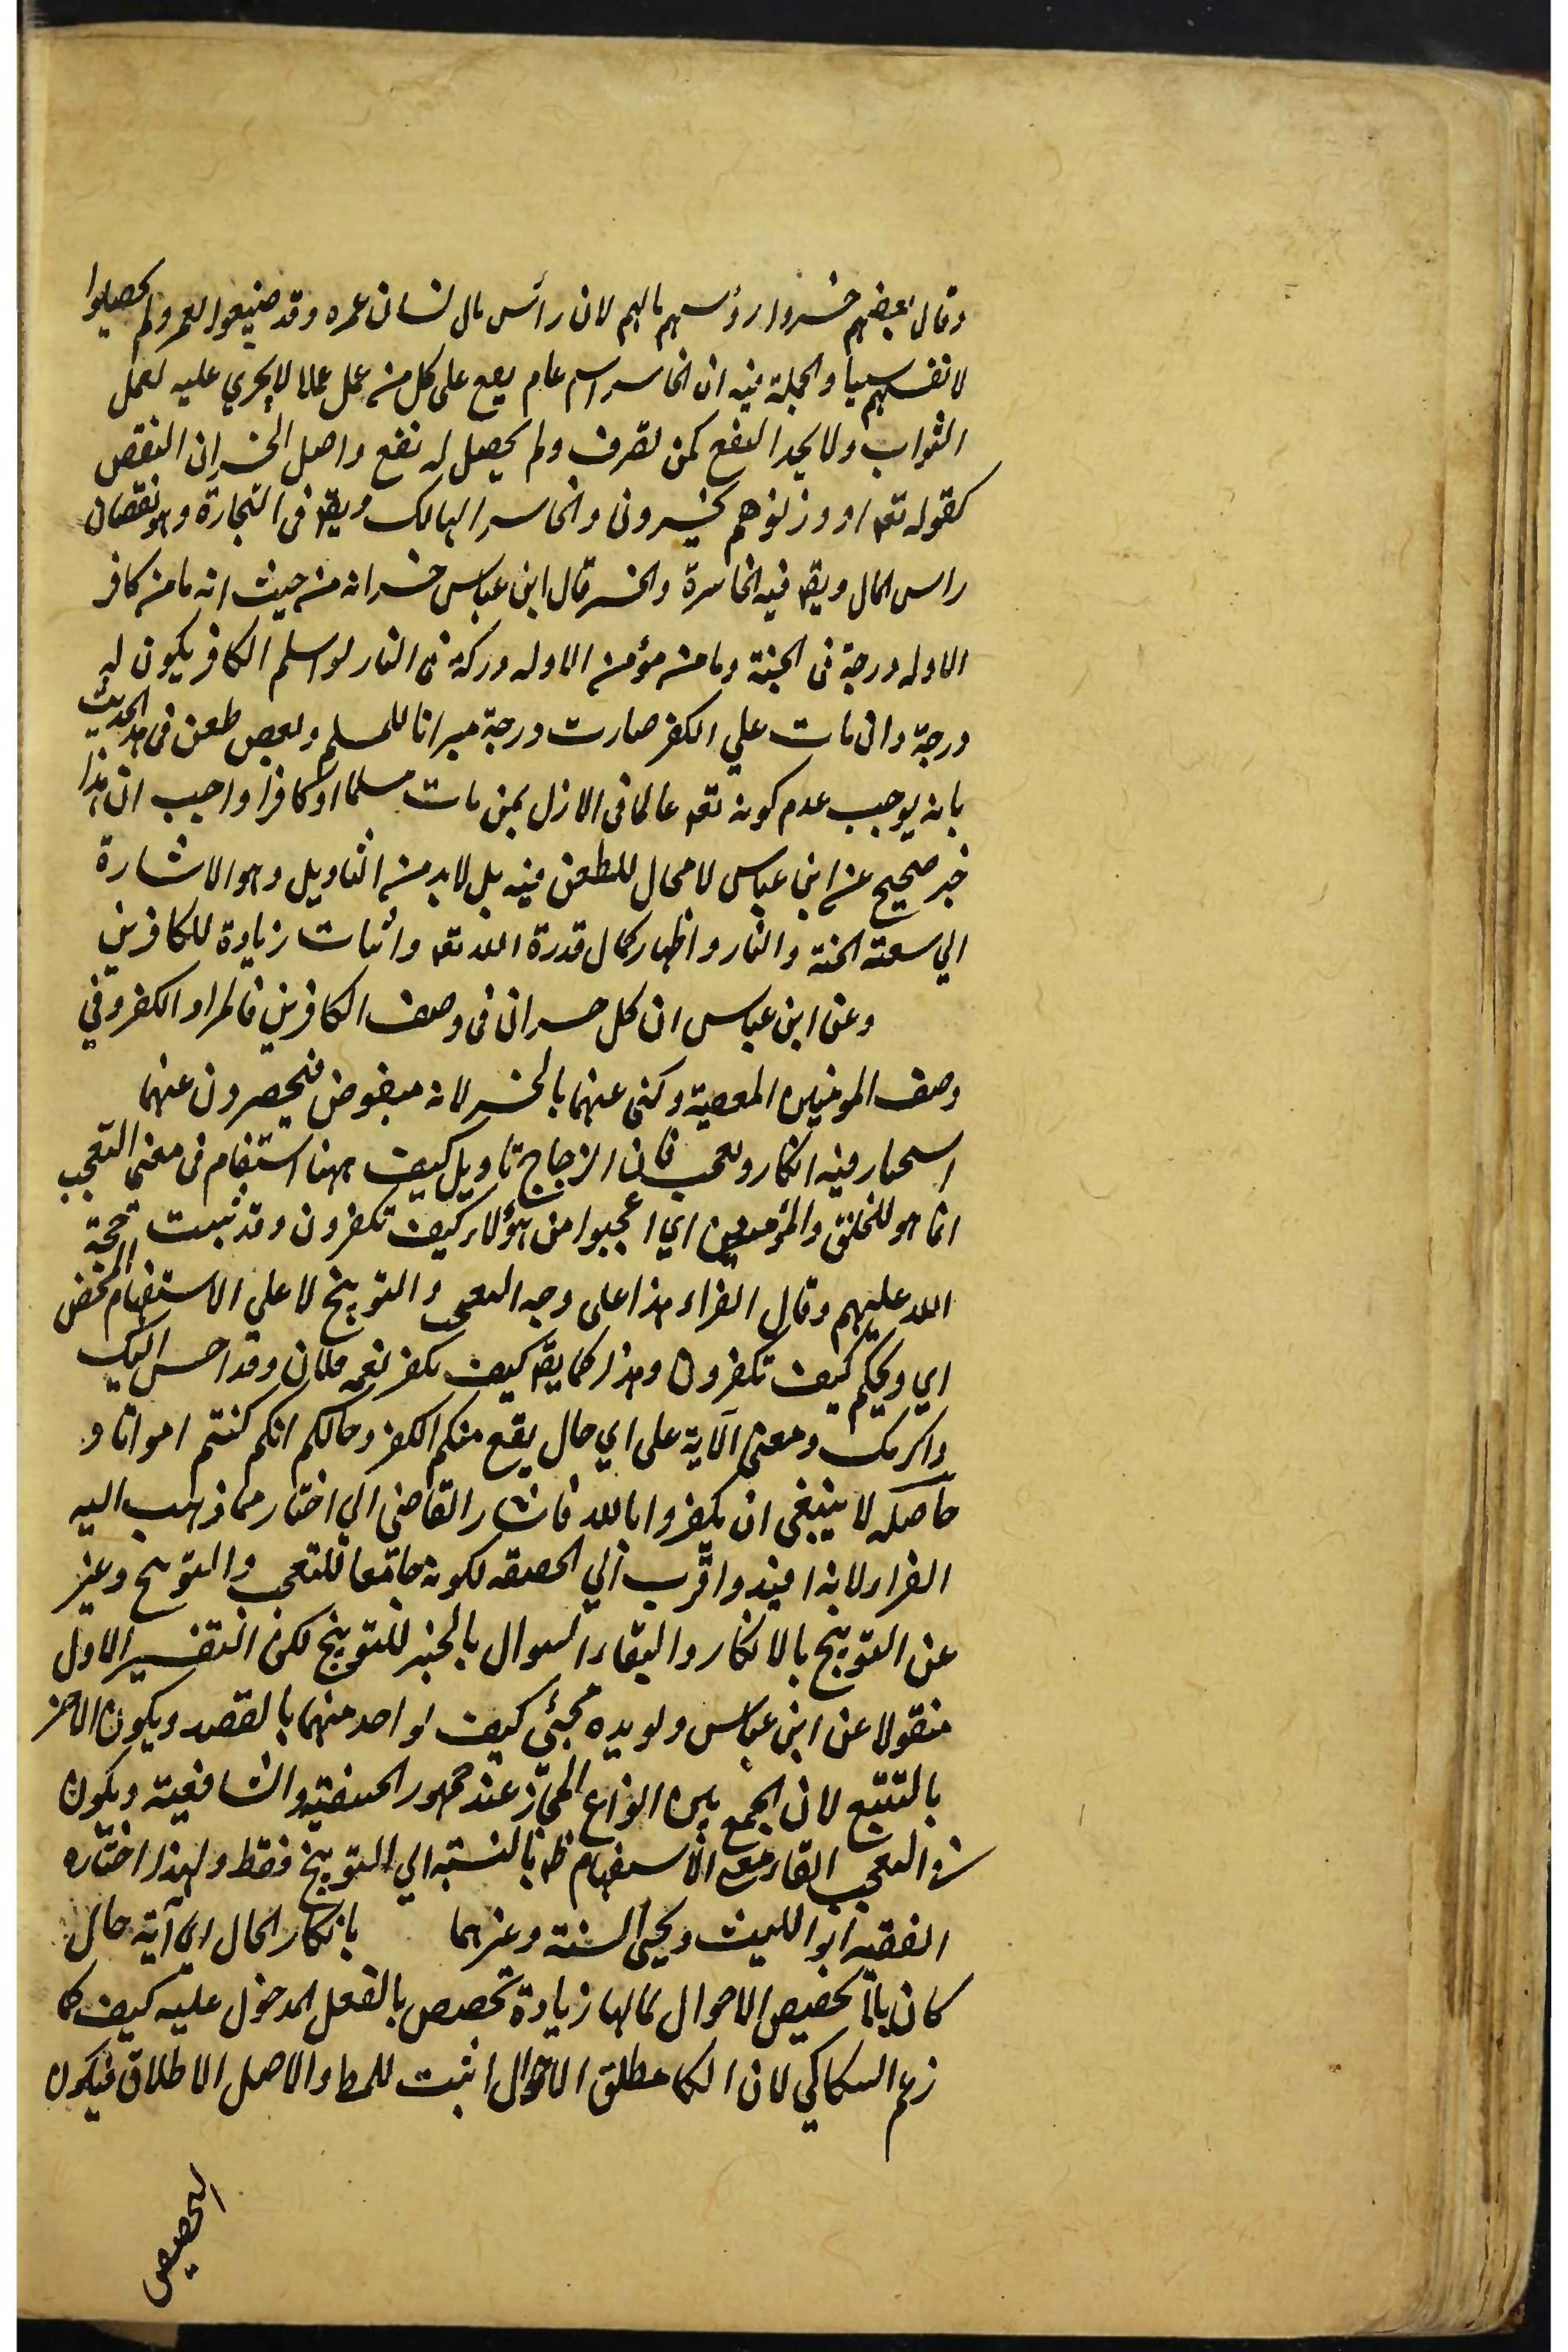 وقال بعضهم خسروا رؤسهم مالهم لان رأس مال لنسان عمره وقد ضيعوا لعمر ولم يحصلوا
لانفسهم سيا والجملة فيه ان الخاسر اسم عام يقع على كل من عمل عملا لا يجري عليه لعمل
الثواب ولا يجد النفع كمن تصرف ولم يحصل له نفع واصل الخسران النقص
كقوله تعه او وزنوهم يخسرون والخاسر الهالك ويقه فى التجارة وهو نقصان
راس المال ويقه فيه الخاسرة والخسر قال ابن عباس خسرانه من حيث انه ما من كافر
الا وله درجة فى الجنة وما من مؤمن الا وله دركة فى النار لو اسلم الكافر يكون له
درجة وان مات علي الكفر صارت درجة ميراثا للمسلم وبعض طعن فى هذا الحديث
بانه يوجب عدم كونه تعه عالما فى الازل بمن مات مسلما او كافرا واجيب ان هذا
خبر صحيح عن ابن عباس لا مجال للطعن فيه بل لا بد من التاويل وهو الاشارة
الي سعة الجنة والنار واظهار كمال قدرة الله تعه واثبات زيادة للكافرين
وعن ابن عباس ان كل خسران فى وصف الكافرين فالمراد الكفر وفي
وصف المومنين المعصية وكنى عنهما بالخسر لانه مبغوض فيحصرون عنهما
استخبار فيه انكار وتعجب قال الزجاج تاويل كيف ههنا استفهام فى معنى التعجب
انما هو للخلق والمؤمنين اي اعجبوا من هؤلاء كيف تكفرون وقد ثبت حجة
الله عليهم وقال الفراء هذا على وجه التعجب والتوبيخ لا على الاستفهام المحض
اي ويحكم كيف تكفرون وهذا كما يقه كيف تكفر نعمة فلان وقد احسن اليك
واكرمك ومعنى الآية على اي حال يقع منكم الكفر وحالكم انكم كنتم امواتا و
حاصله لا ينبغى ان يكفروا بالله فاشار القاضي الي اختار مما ذهب اليه
الفراء لانه افيد واقرب الي الحقيقة لكونه جامعا للتعجب والتوبيخ وعبر
عن التوبيخ بالانكار والبقاء السوال بالخبر للتوبيخ لكن التفسير الاول
منقولا عن ابن عباس ويويده مجئي كيف لواحد منهما بالقصد ويكون الاخر
بالتتبع لان الجمع بين انواع المجاز عند جمهور الحنفية والشافعية ويكون
في التعجب القاء معنى الاستفهام ظه بالنسبة الي التوبيخ فقط ولهذا اختاره
الفقيه ابو الليث ومحيى السنة وغيرهما بانكار الحال اي آية حال
كان بلا تخصيص الاحوال لما لها زيادة تخصص بالفعل المدخول عليه كيف كما
زعم السكاكي لان انكار مطلق الاحوال اثبت للمط والاصل الاطلاق فيكون
التخصيص